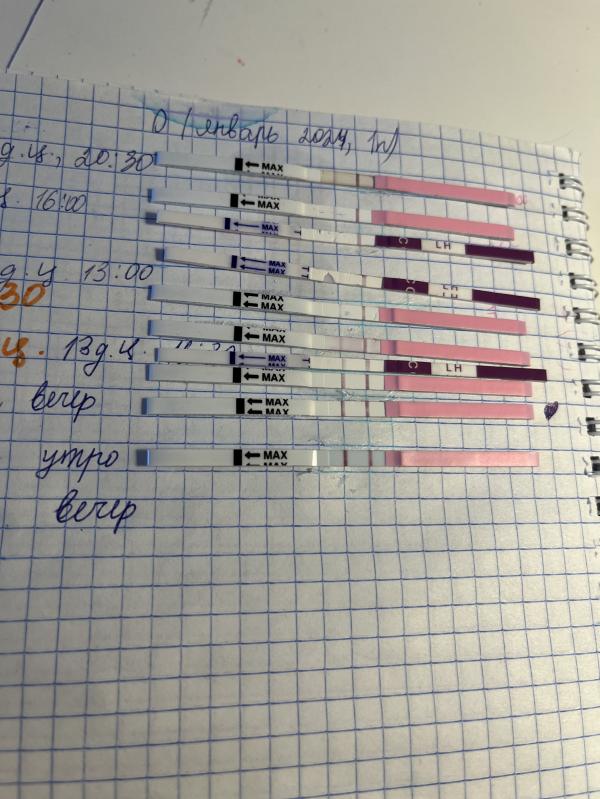 О (январь 2024,
д.ц., 20:30
MAX
16:00
MAX
MAX
LH
д.ц 13:00
MAX
MAX
30
MAX
MAX
ц. 13 д.ц.
MAX
LH
MAX
вечер
MAX
MAX
утро
MAX
вечер